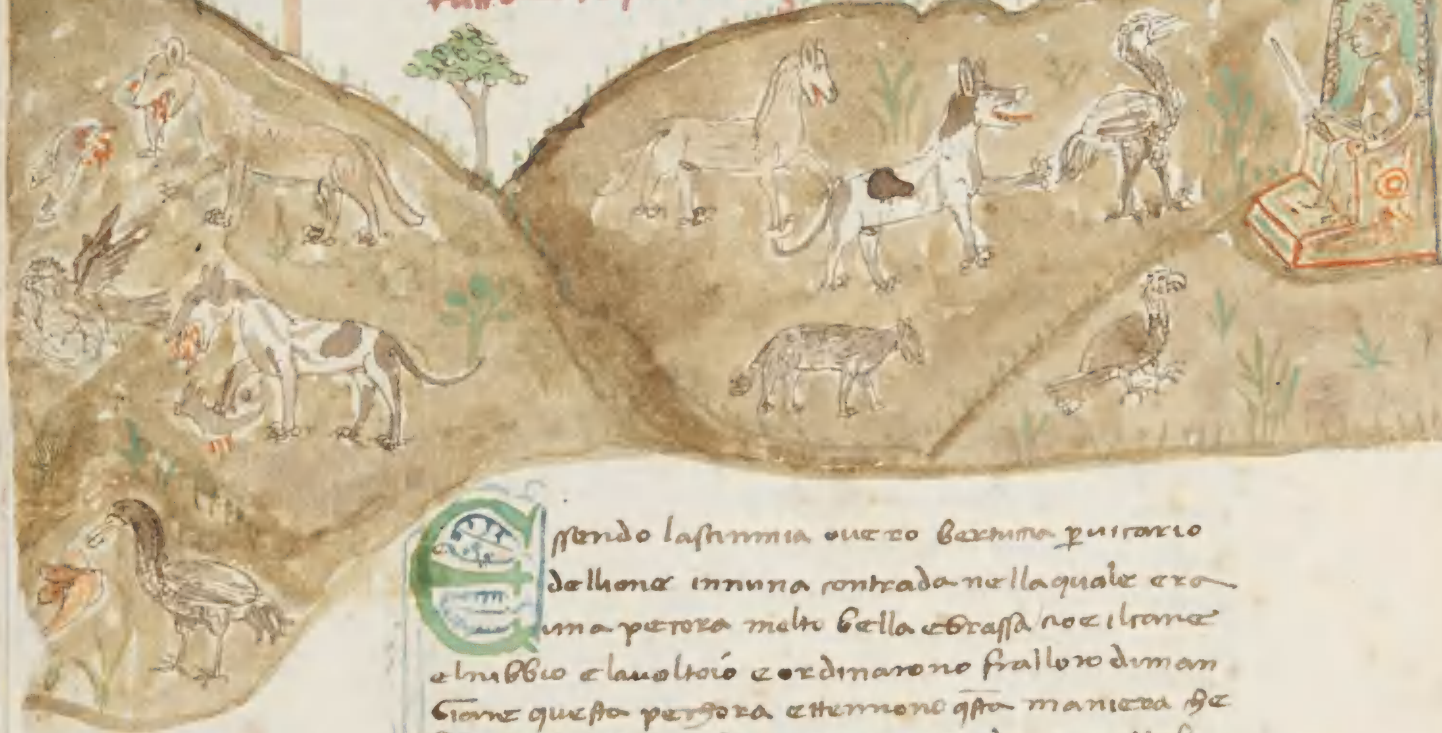 Essendo lascimmia overo bertucia ꝑ vicario
dellione innuna contrada nellaquale era
una pecora molto bella egrassa cioe ilcane
elnibbio elavoltoio e ordinarono fralloro diman
giare questa pechora ettennono q̅sta maniera che